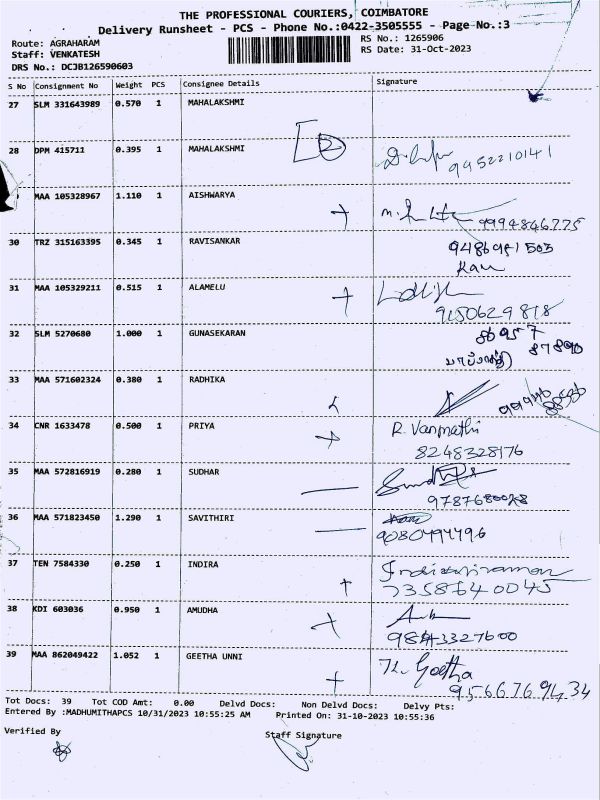 THE PROFESSIONAL COURIERS, COIMBATORE
Delivery Runsheet - PCS - Phone No.:0422-3505555 - Page No.:3
Route: AGRAHARAM
Staff: VENKATESH
DRS No.: DCJB126590603
RS No.: 1265906
RS Date: 31-Oct-2023
S No Consignment No Weight PCS Consignee Details Signature
27 SLM 331643989 0.570 1 MAHALAKSHMI
28 DPM 415711 0.395 1 MAHALAKSHMI 2 9952210141
MAA 105328967 1.110 1 AISHWARYA 9994846775
30 TRZ 315163395 0.345 1 RAVISANKAR
31 MAA 105329211 0.515 1 ALAMELU 9150629818
32 SLM 5270680 1.000 1 GUNASEKARAN
33 MAA 571602324 0.380 1 RADHIKA
34 CNR 1633478 0.500 1 PRIYA R. Vanmathi
8248328176
35 MAA 572816919 0.280 1 SUDHAR
9787680028
36 MAA 571823450 1.290 1 SAVITHIRI
9080494496
37 TEN 7584330 0.250 1 INDIRA
7358640045
38 KDI 603036 0.950 1 AMUDHA
9843327600
39 MAA 862049422 1.052 1 GEETHA UNNI Geetha
9566769434
Tot Docs: 39 Tot COD Amt: 0.00 Delvd Docs: Non Delvd Docs: Delvy Pts:
Entered By :MADHUMITHAPCS 10/31/2023 10:55:25 AM Printed On: 31-10-2023 10:55:36
Verified By Staff Signature